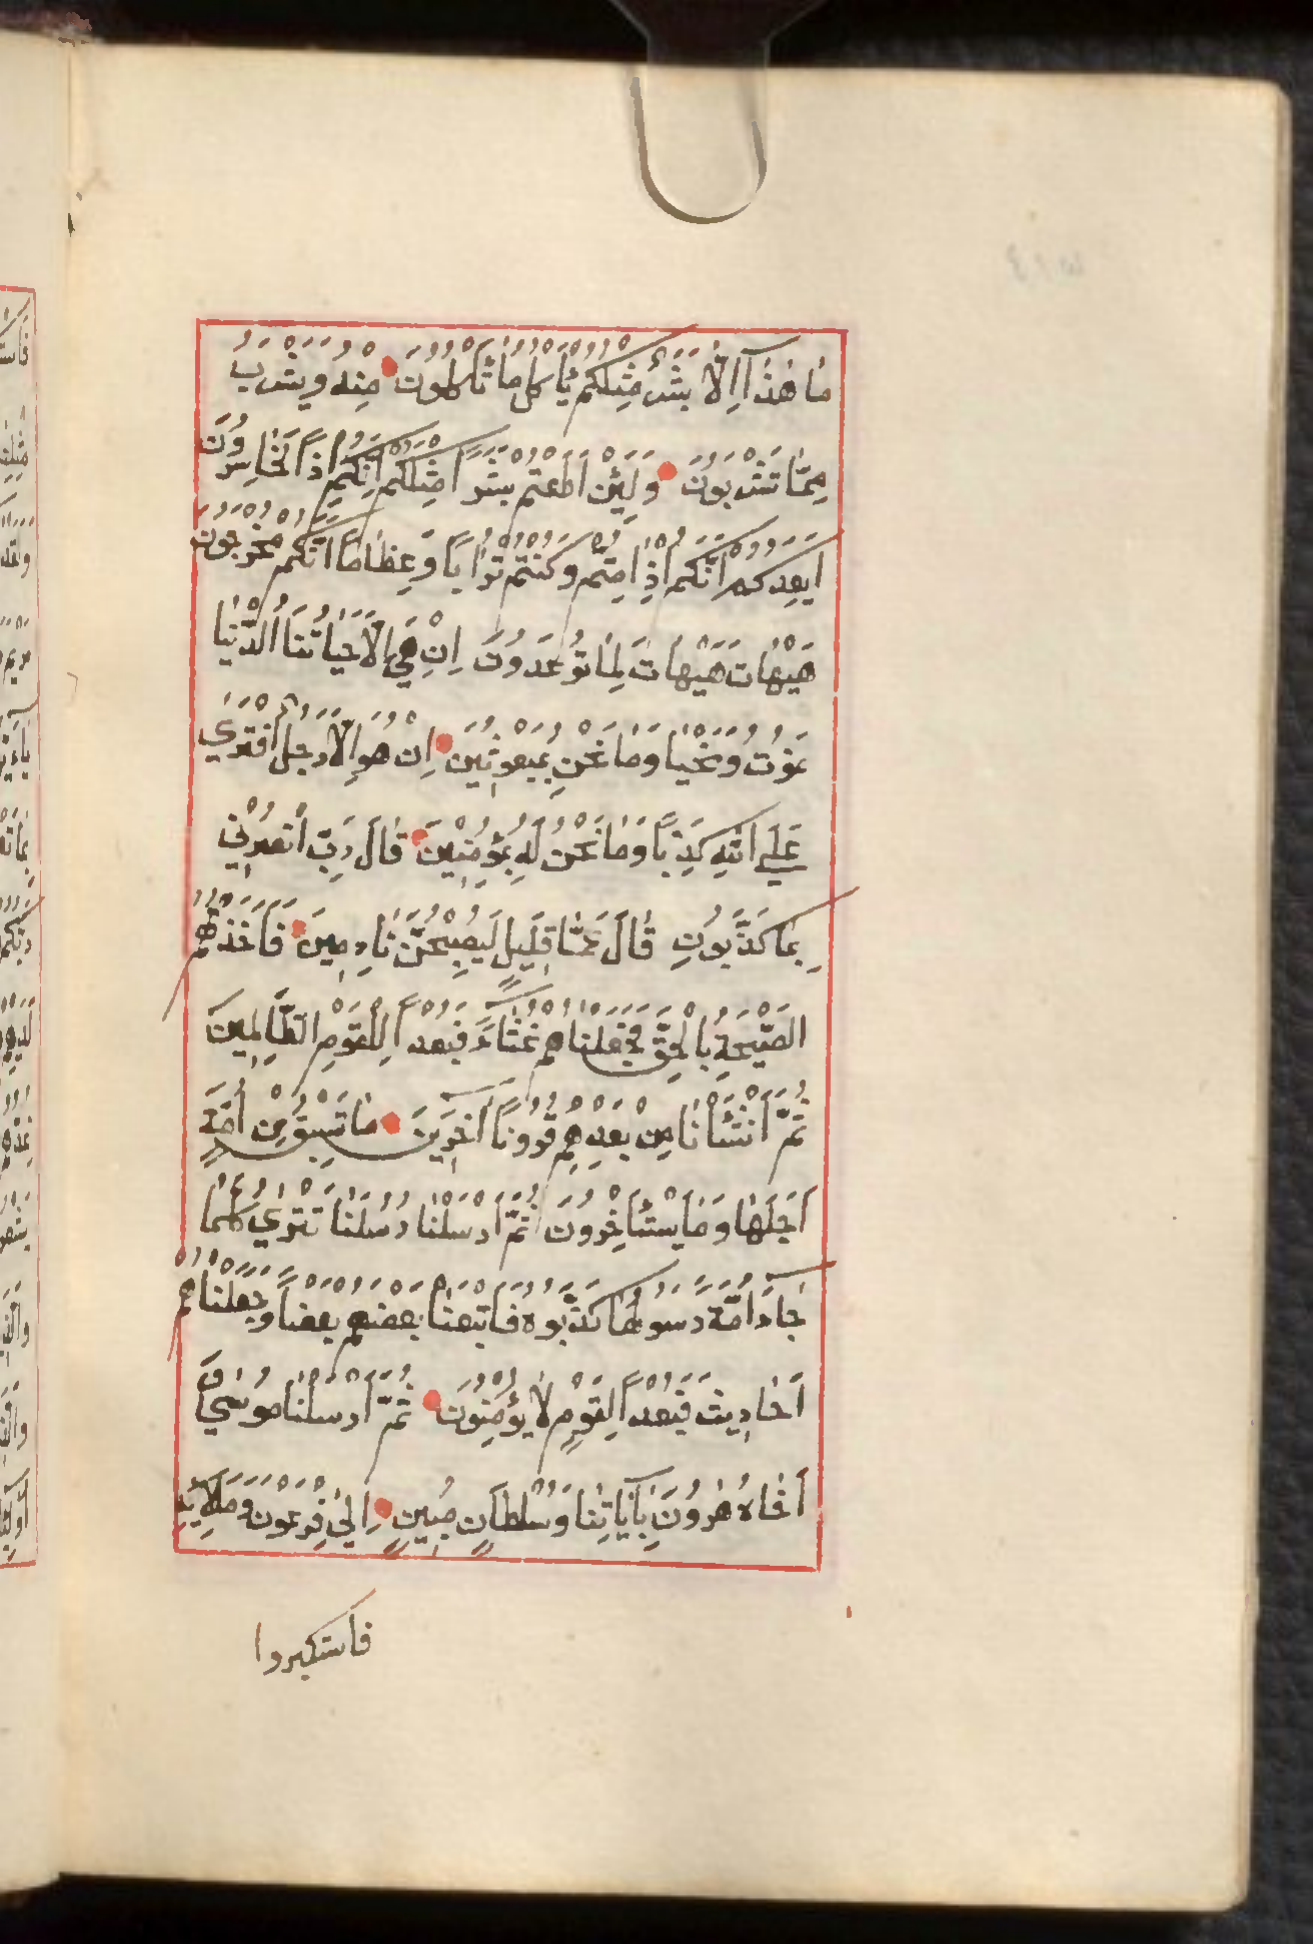 مَا هٰذَآ اِلَّا بَشَرٌ مِثْلُكُمْ يَأْكُلُ مَا تَأْكُلُوُنَ مِنْهُ وَيَشْرَبُ
مِمَّا تَشْرَبُونَ وَلَئِنْ اَطَعْتُمْ بَشَرًا مِثْلَكُمْ اِنَّكُمْ اِذًا لَخَاسِرُونَ
اَيَعِدُكُمْ اَنَّكُمْ اِذَا مِتُّمْ وَكُنْتُمْ تُرَابًا وَعِظَامًا اَنَّكُمْ مُخْرَجُونَ
هَيْهَاتَ هَيْهَاتَ لِمَا تُوعَدُونَ اِنْ هِيَ اِلَّا حَيَاتُنَا الدُّنْيَا
نَمُوْتُ وَنَحْيَا وَمَا نَحْنُ بِمَبْعُوثِينَ اِنْ هُوَ اِلَّا رَجُلٌ اَفْتَرٰى
عَلَى اللّٰهِ كَذِبًا وَمَا نَحْنُ لَهُ بِمُؤْمِنِيْنَ قَالَ رَبِّ اَنْصُرْنِي
بِمَا كَذَّبُونِ قَالَ عَمَّا قَلِيلٍ لَيُصْبِحُنَّ نَادِمِينَ فَاَخَذَتْهُمُ
الصَّيْحَةُ بِالْحَقِّ فَجَعَلْنَاهُمْ غُثَآءً فَبُعْدًا لِلْقَوْمِ الظَّالِمِينَ
ثُمَّ اَنْشَأْنَا مِنْ بَعْدِهِمْ قُرُونًا آخَرِينَ مَا تَسْبِقُ مِنْ اُمَّةٍ
اَجَلَهَا وَمَا يَسْتَأْخِرُونَ ثُمَّ اَرْسَلْنَا رُسُلَنَا تَتْرٰى كُلَّمَا
جَآءَ اُمَّةً رَسُولُهَا كَذَّبُوهُ فَاَتْبَعْنَا بَعْضَهُمْ بَعْضًا وَجَعَلْنَاهُمْ
اَحَادِيثَ فَبُعْدًا لِقَوْمٍ لَا يُؤْمِنُونَ ثُمَّ اَرْسَلْنَا مُوسٰى وَ
اَخَاهُ هٰرُونَ بِآيَاتِنَا وَسُلْطَانٍ مُبِينٍ اِلٰى فِرْعَوْنَ وَمَلَائِهِ
فاستكبروا